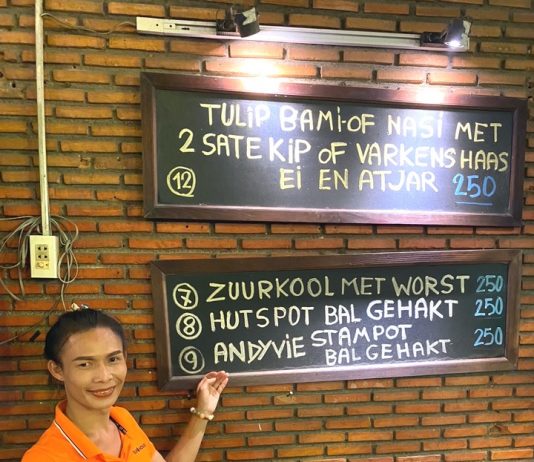 TULIP BAMI-OF NASI MET
2 SATE KIP OF VARKENSHAAS
12 EI EN ATJAR 250
7 ZUURKOOL MET WORST 250
8 HUTSPOT BAL GEHAKT 250
9 ANDYVIE STAMPOT
BAL GEHAKT 250